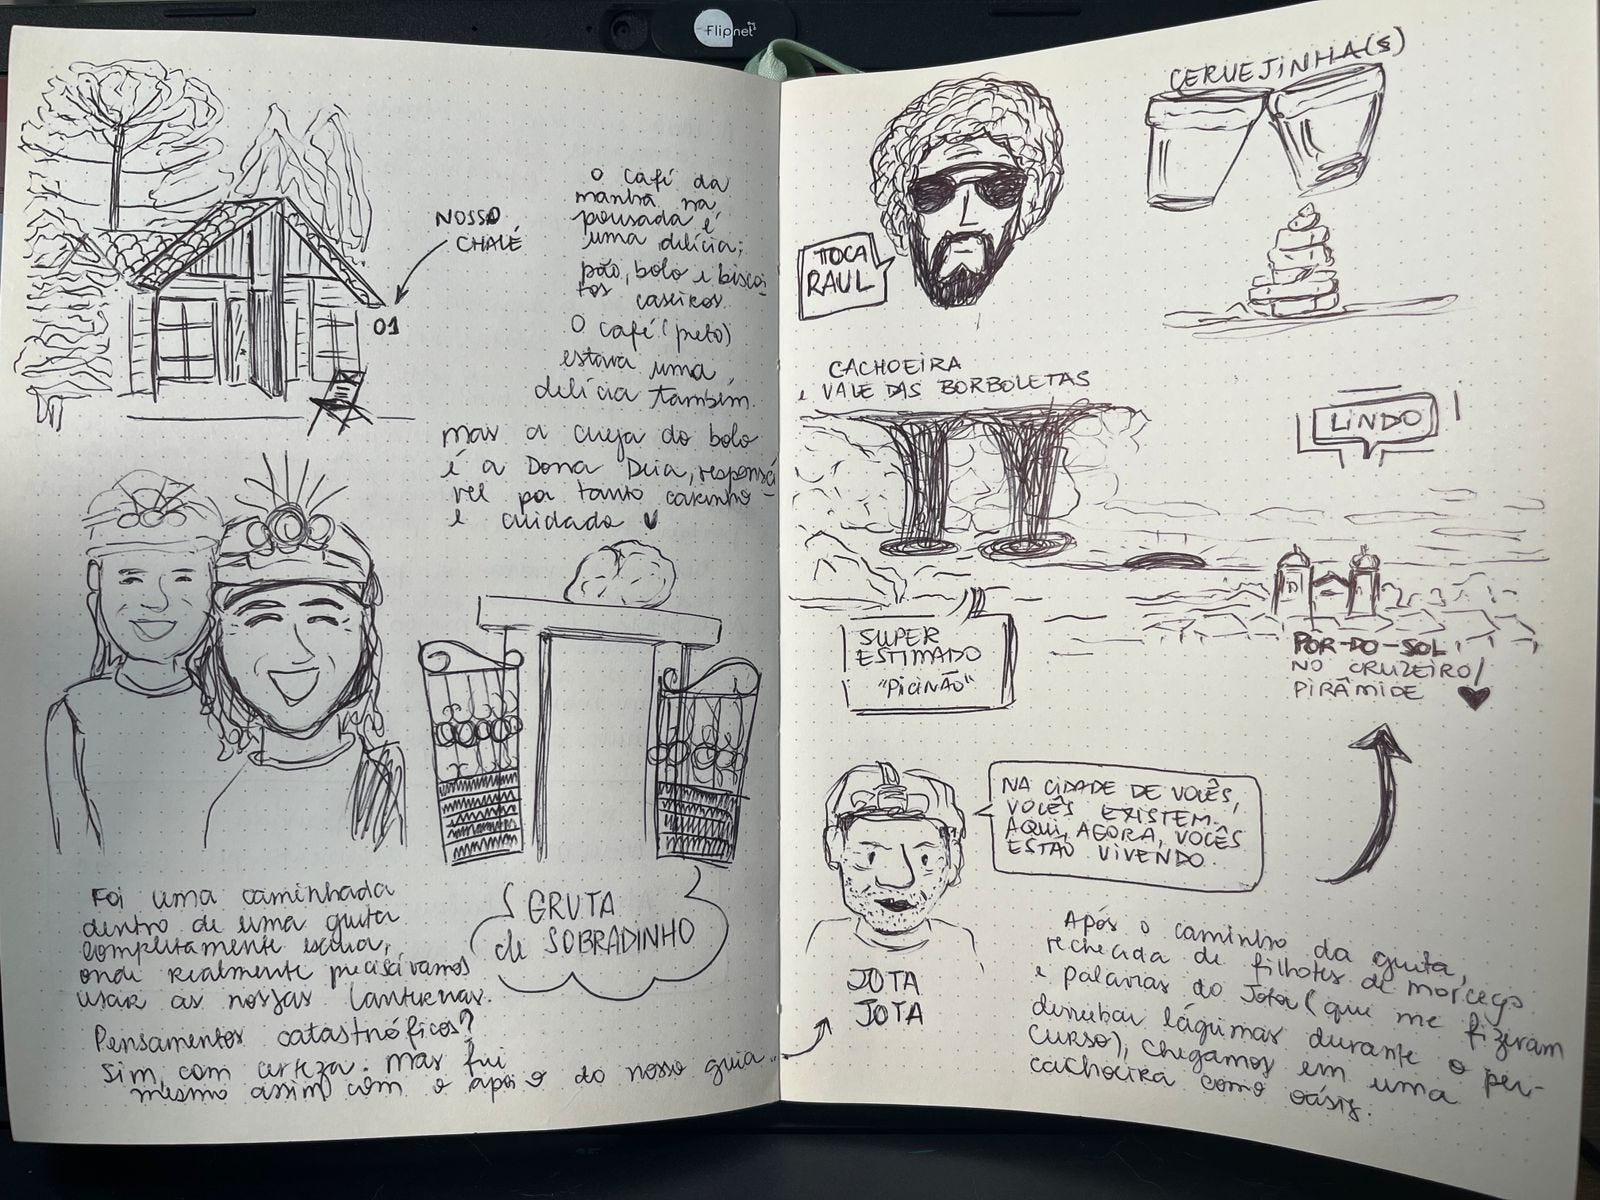 Flipnet
NOSSO
CHALÉ
01
O café da
manhã na
pousada é
uma delícia;
pão, bolo e biscoi-
tos caseiros.
O café (preto)
estava uma
delícia também.
mas a cereja do bolo
é a Dona Deia, responsá
vel por tanto carinho-
e cuidado
Foi uma caminhada
dentro de uma gruta
completamente escura,
onde realmente precisávamos
usar as nossas lanternas.
Pensamentos catastróficos?
Sim, com certeza. mas fui
mesmo assim com o apoio do nosso guia...
GRUTA
de SOBRADINHO
TOCA
RAUL
CERVEJINHA(S)
CACHOEIRA
VALE DAS BORBOLETAS
LINDO
SUPER
ESTIMADO
"PICINÃO"
POR-DO-SOL
NO CRUZEIRO/
PIRÂMIDE
NA CIDADE DE VOCÊS,
VOCÊS EXISTEM.
AQUI, AGORA, VOCÊS
ESTÃO VIVENDO.
JOTA
JOTA
Após o caminho da gruta,
recheada de filhotes de morcego
e palavras do Jota (que me fizeram
derrubar lágrimas durante o per-
curso), chegamos em uma
cachoeira como oásis.